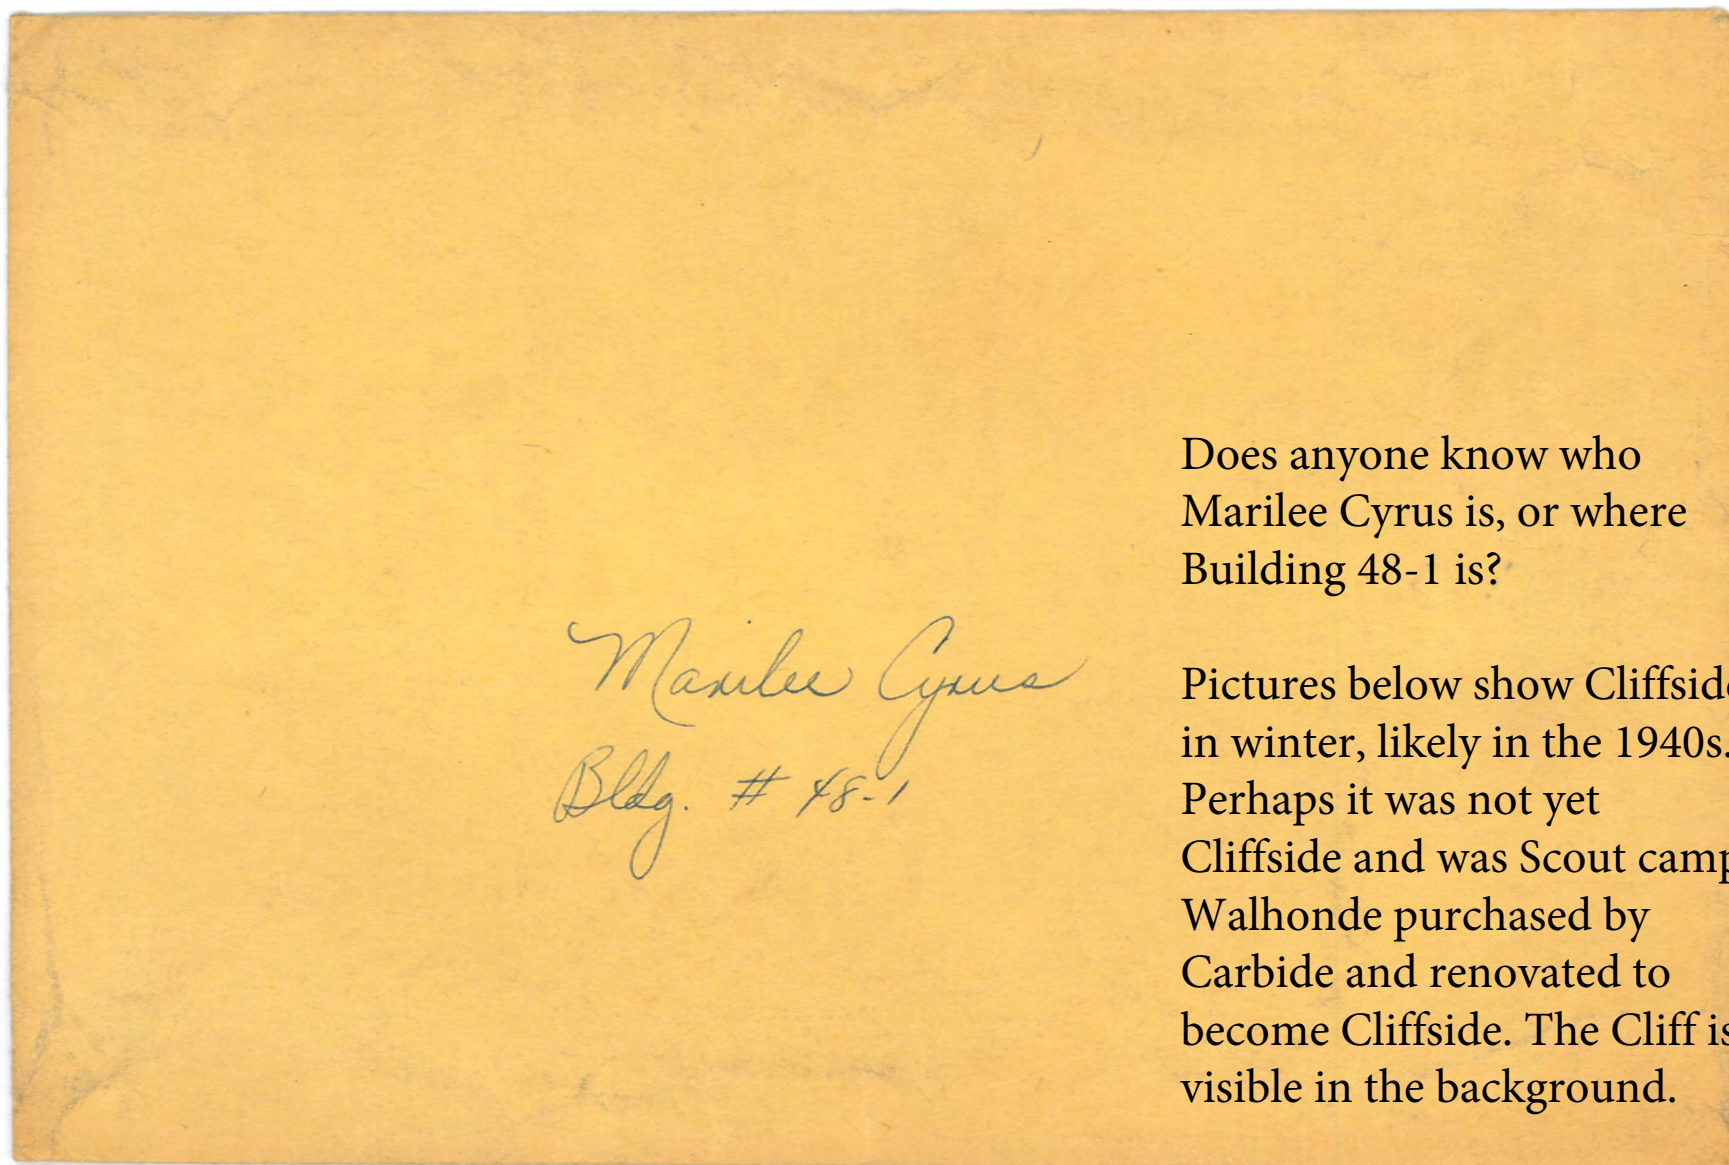 Does anyone know who
Marilee Cyrus is, or where
Building 48-1 is?
Marilee Cyrus
Bldg. # 48-1
Pictures below show Cliffside
in winter, likely in the 1940s.
Perhaps it was not yet
Cliffside and was Scout camp
Walhonde purchased by
Carbide and renovated to
become Cliffside. The Cliff is
visible in the background.